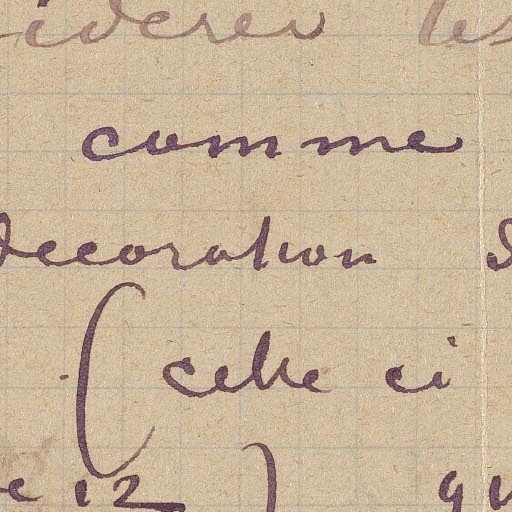 iderer les
comme
decoration d
(celle ci
e 12) qu